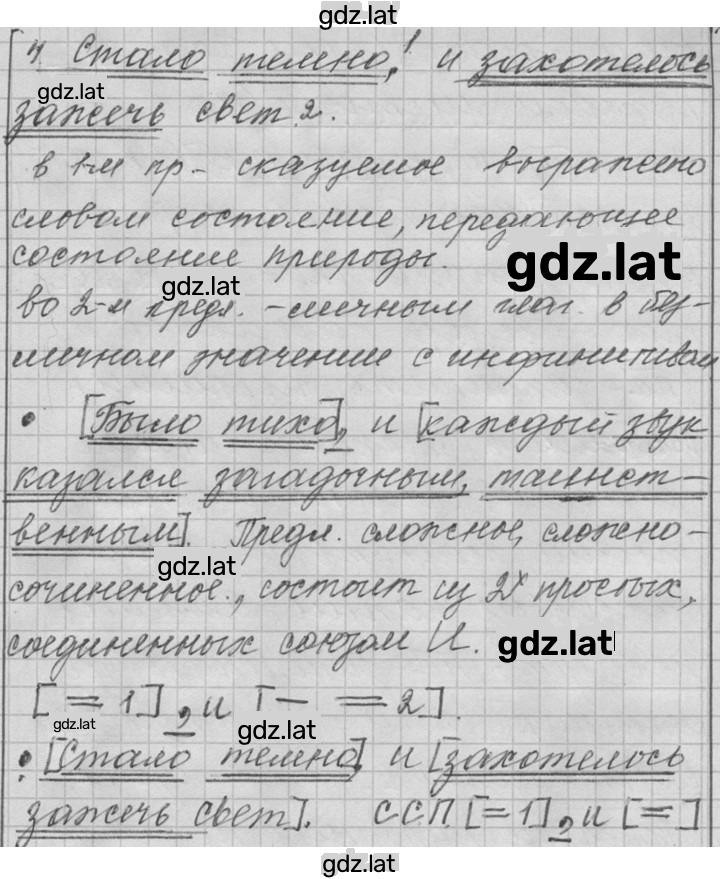 gdz.lat
4. Стало темно,¹ и захотелось
gdz.lat
зажечь свет 2.
в 1-м пр- сказуемое выражено
словом состояние, передающее
состояние природы.
gdz.lat
gdz.lat
во 2-м предл. -личным глаг. в без-
личном значении с инфинитивом
• [Было тихо], и [каждый звук
казался загадочным, таинст-
венным]. Предл. сложное, сложно-
gdz.lat
сочиненное., состоит из 2х простых,
соединенных союзом И.
gdz.lat
[= 1], и [— = 2].
gdz.lat
gdz.lat
• [Стало темно] и [захотелось
зажечь свет]. ССП [=1], и [=]
gdz.lat